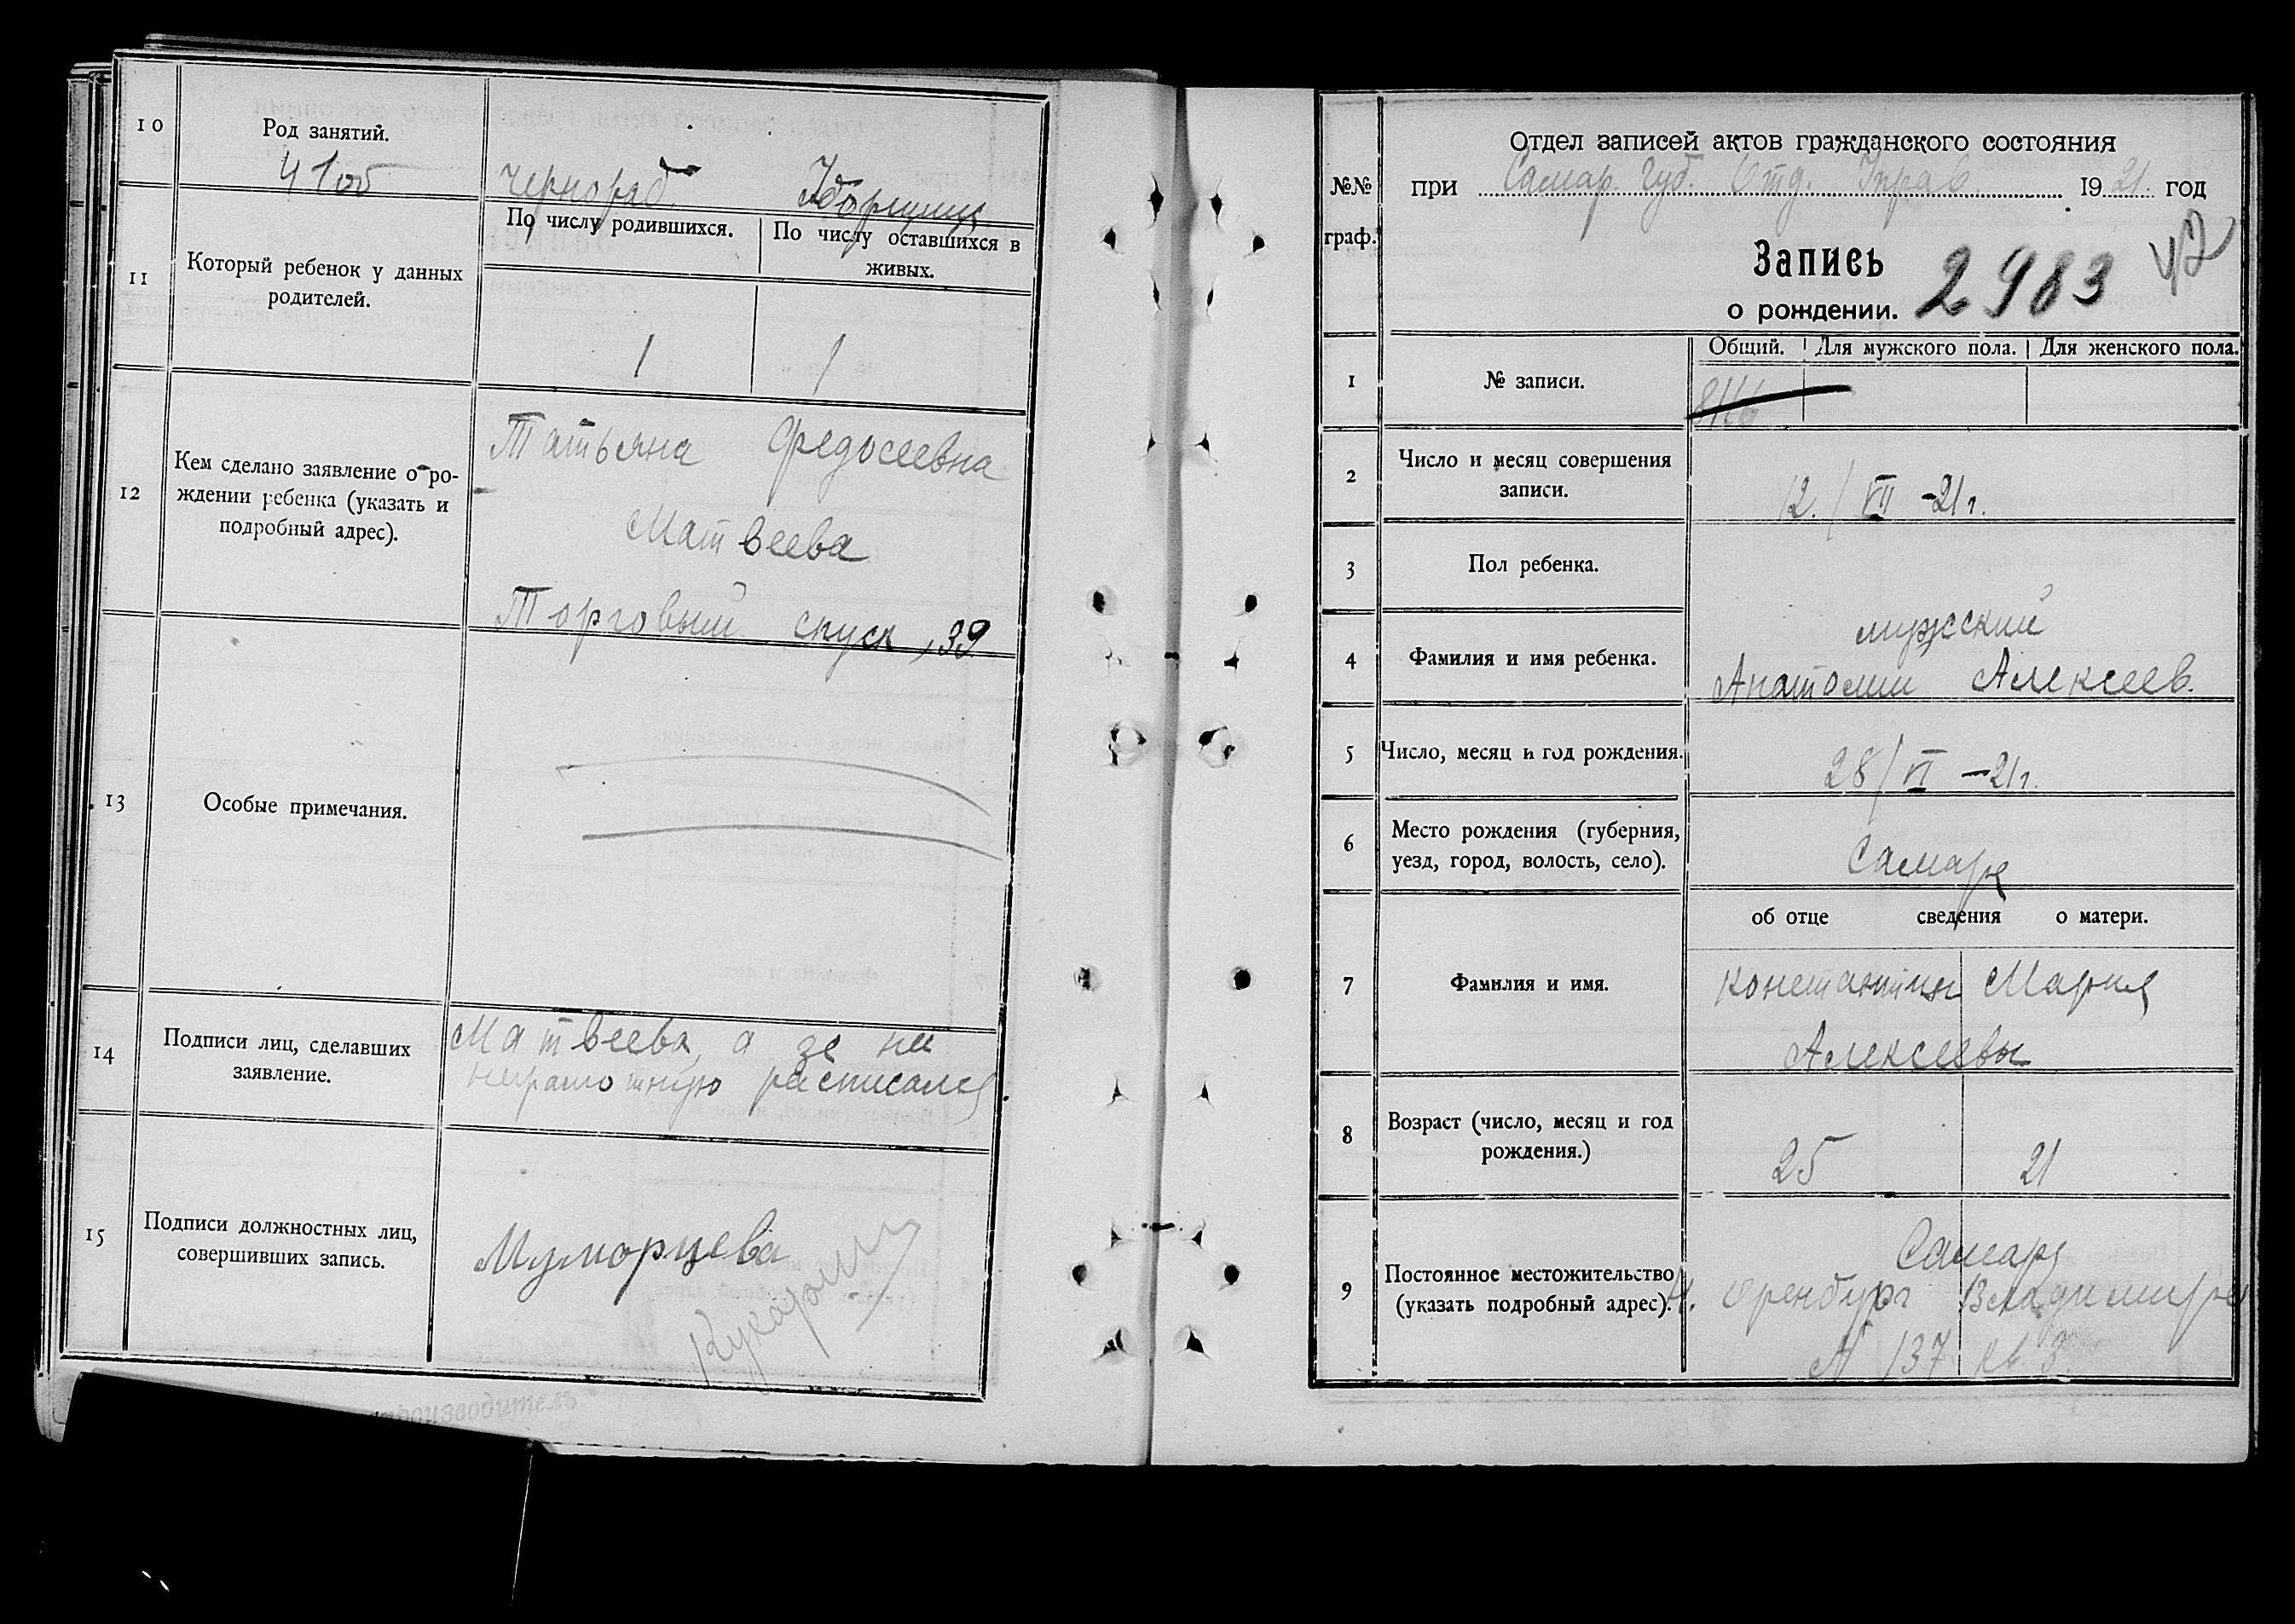 10
Род занятий.
чернораб. Уборщица
По числу родившихся.
По числу оставшихся в
живых.
11
Который ребенок у данных
родителей.
1 1
12
Кем сделано заявление о ро-
ждении ребенка (указать и
подробный адрес).
Татьяна Федосеевна
Матвеева
Торговый спуск, 39
13
Особые примечания.
14
Подписи лиц, сделавших
заявление.
Матвеева, а за не
неграмотную расписался
15
Подписи должностных лиц,
совершивших запись.
производитель
№№
граф.
Отдел записей актов гражданского состояния
при Самар. Губ. Отд. Управ. 1921 год
Запись
о рождении. 2983
Общий. Для мужского пола. Для женского пола.
1
№ записи.
2
Число и месяц совершения
записи.
12/VII-21г.
3
Пол ребенка.
мужский
4
Фамилия и имя ребенка.
Анатолий Алексеев.
5
Число, месяц и год рождения.
28/VI-21г.
6
Место рождения (губерния,
уезд, город, волость, село).
Самара
об отце сведения о матери.
7
Фамилия и имя.
Константин Мария
Алексеевы
8
Возраст (число, месяц и год
рождения.)
25 21
9
Постоянное местожительство
(указать подробный адрес).
Самара
Оренбург
№ 137 кв. 3